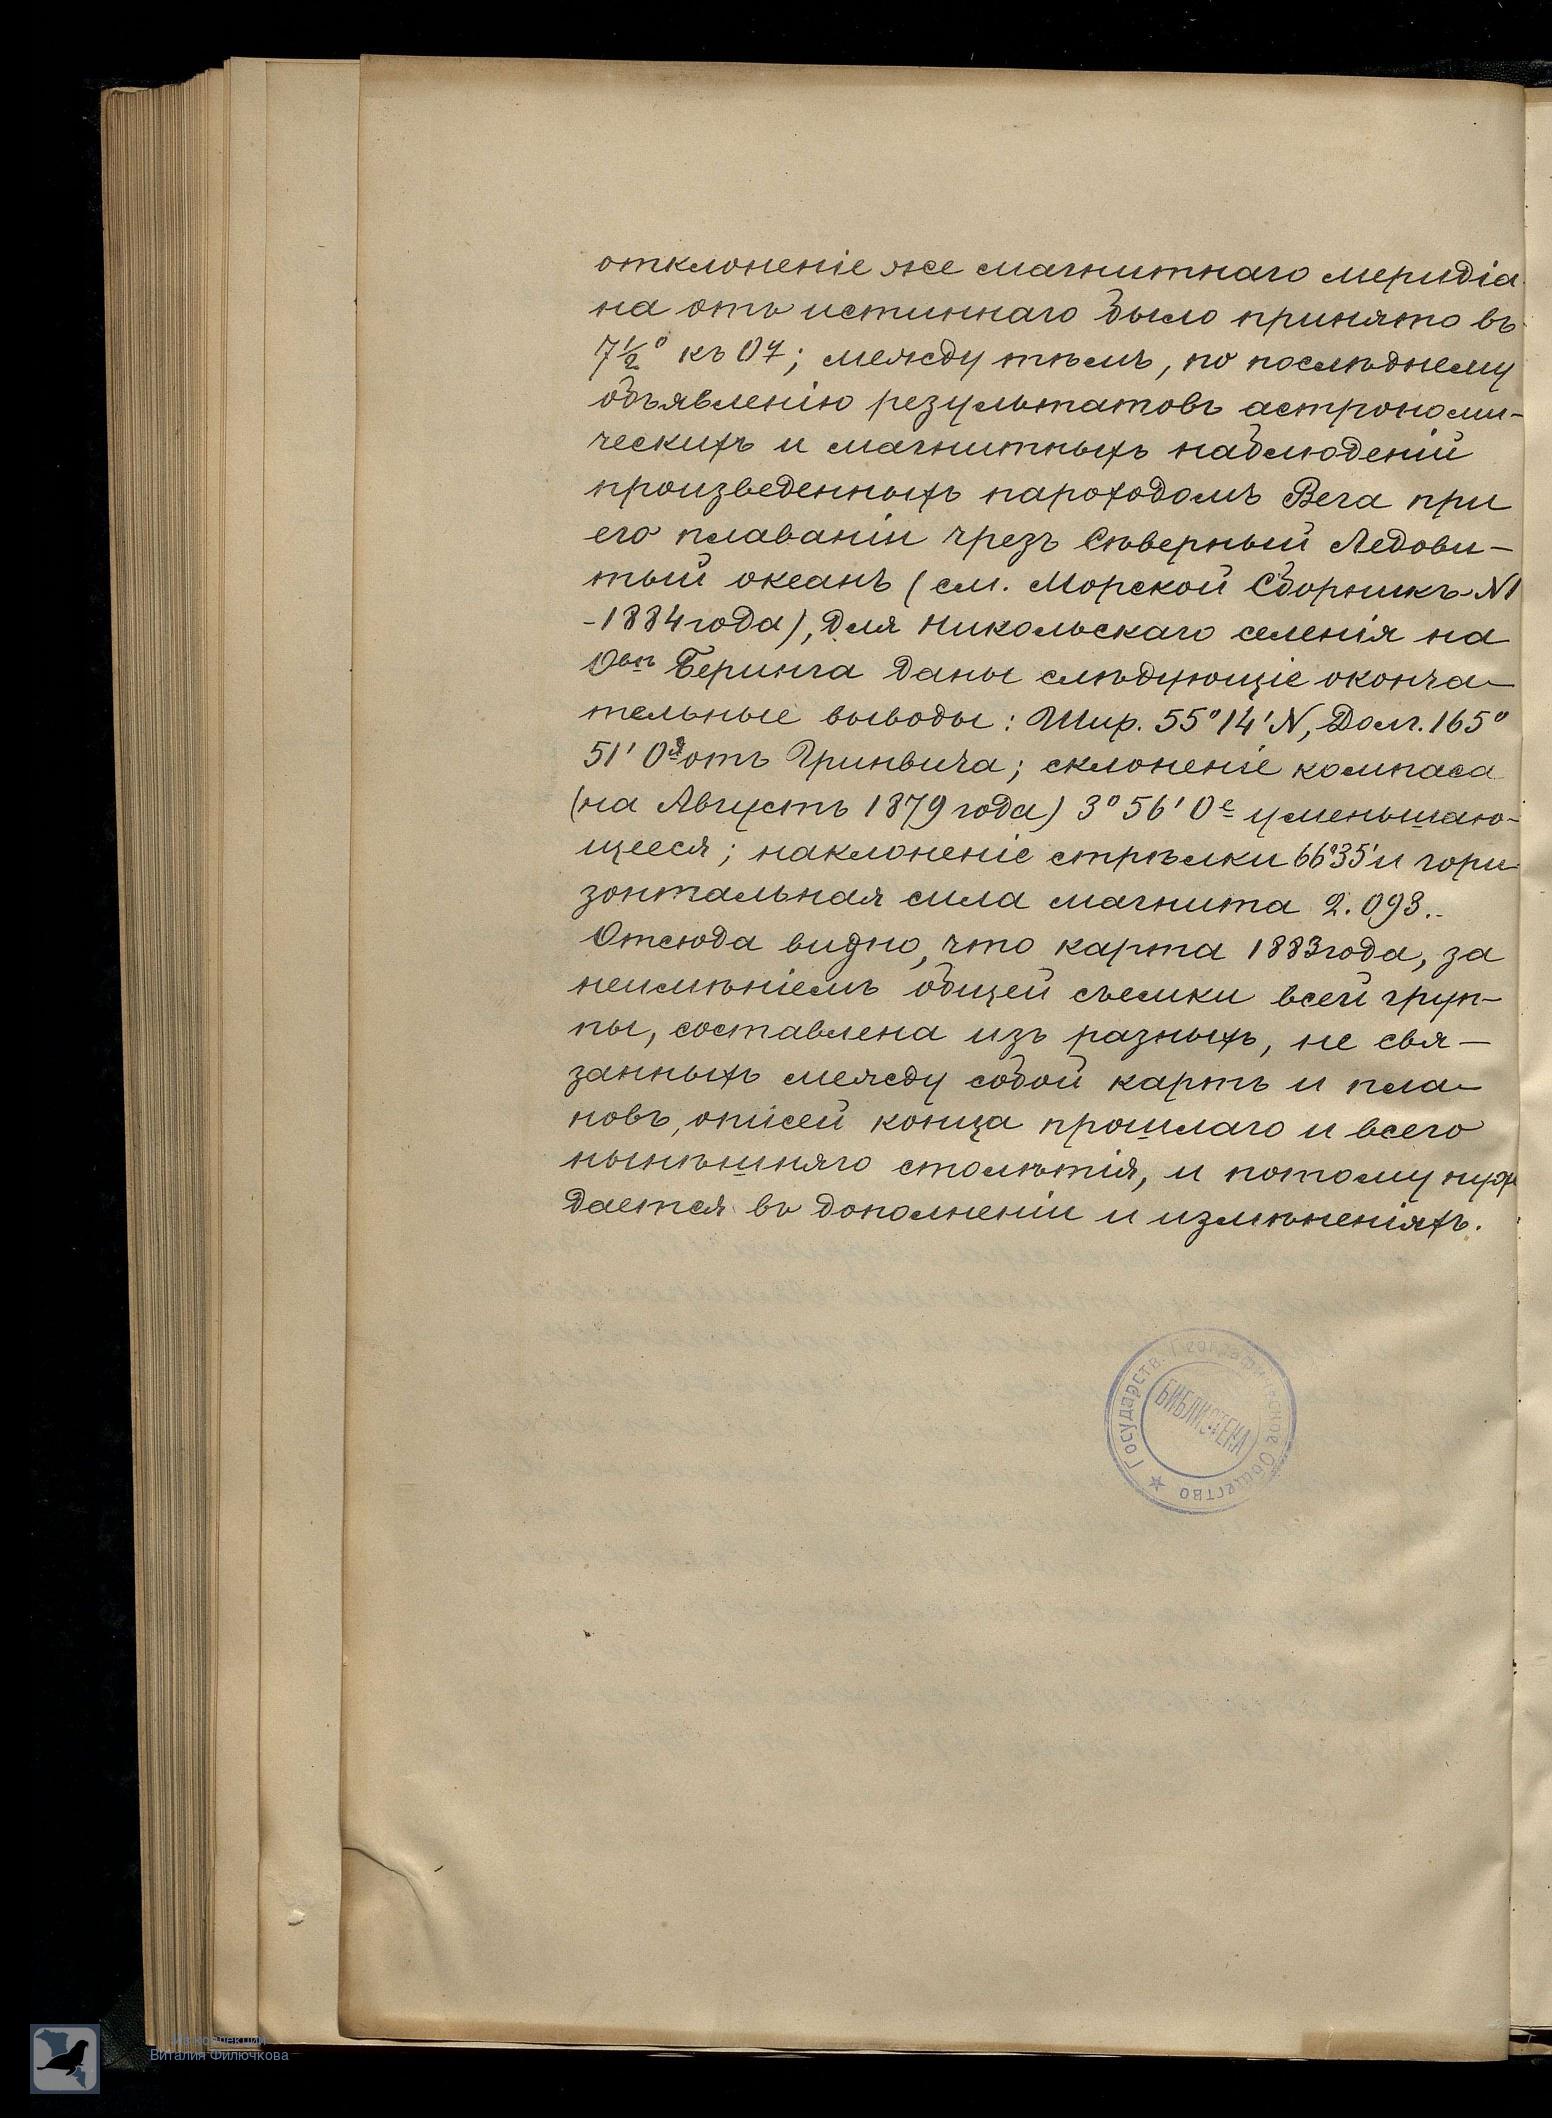 отклоненіе же магнитнаго меридіа
на отъ истиннаго было принято въ
7½° къ Оу; между тѣмъ, по послѣднему
объявленію результатовъ астрономи-
ческихъ и магнитныхъ наблюденій
произведенныхъ пароходомъ Вега при
его плаваніи чрезъ Сѣверный Ледови-
тый океанъ (см. Морской Сборникъ-N1
-1884 года), для Никольскаго селенія на
Овѣ Беринга даны слѣдующіе оконча-
тельные выводы: Шир. 55°14' N, Долг. 165°
51' Оя отъ Гринвича; склоненіе компаса
(на Августъ 1879 года) 3°56' Ое уменьшаю-
щееся; наклоненіе стрѣлки 66°35' и гори
зонтальная сила магнита 2.093..
Отсюда видно, что карта 1883 года, за
неимѣніемъ общей съемки всей груп-
пы, составлена изъ разныхъ, не свя-
занныхъ между собой картъ и пла-
новъ, описей конца прошлаго и всего
нынѣшняго столѣтія, и потому нуж
дается въ дополненіи и измѣненіяхъ.
Государств. Географическое Общество
БИБЛИОТЕКА
Из коллекции
Виталия Филючкова